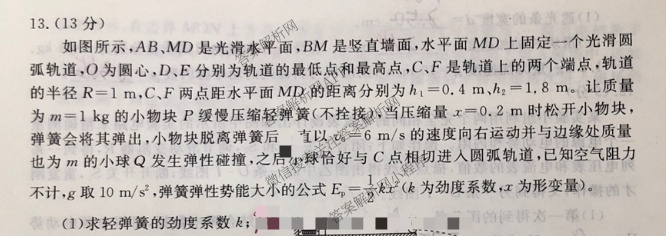 13.(13 分)
如图所示,AB、MD 是光滑水平面,BM 是竖直墙面,水平面 MD 上固定一个光滑圆
弧轨道,O 为圆心,D、E 分别为轨道的最低点和最高点,C、F 是轨道上的两个端点,轨道
的半径 R=1 m,C、F 两点距水平面 MD 的距离分别为 h₁=0.4 m、h₂=1.8 m。让质量
为 m=1 kg 的小物块 P 缓慢压缩轻弹簧(不拴接),当压缩量 x=0.2 m 时松开小物块,
弹簧会将其弹出,小物块脱离弹簧后 直以 =6 m/s 的速度向右运动并与边缘处质量
也为 m 的小球 Q 发生弹性碰撞,之后 球恰好与 C 点相切进入圆弧轨道,已知空气阻力
不计,g 取 10 m/s²,弹簧弹性势能大小的公式 Eₚ=½kx²(k 为劲度系数,x 为形变量)。
(1)求轻弹簧的劲度系数 k;